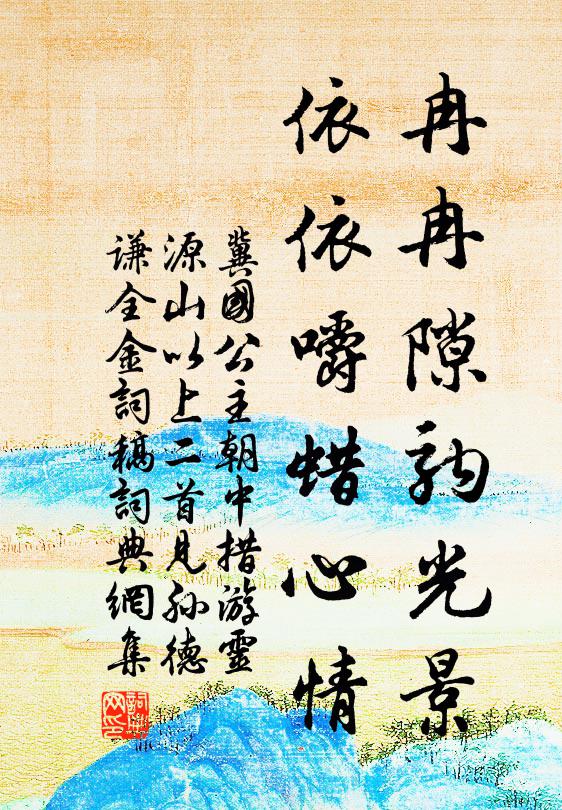 冉冉隙驹光景
依依嚼蜡心情
冀國公主朝中措游靈
源山以上二首見孙德
谦全金詞稿詞典網集